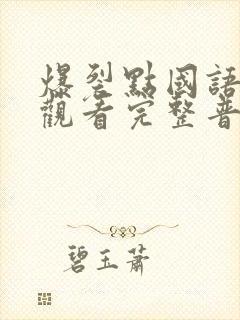 爆裂點國語
觀看完整普
碧玉蕭